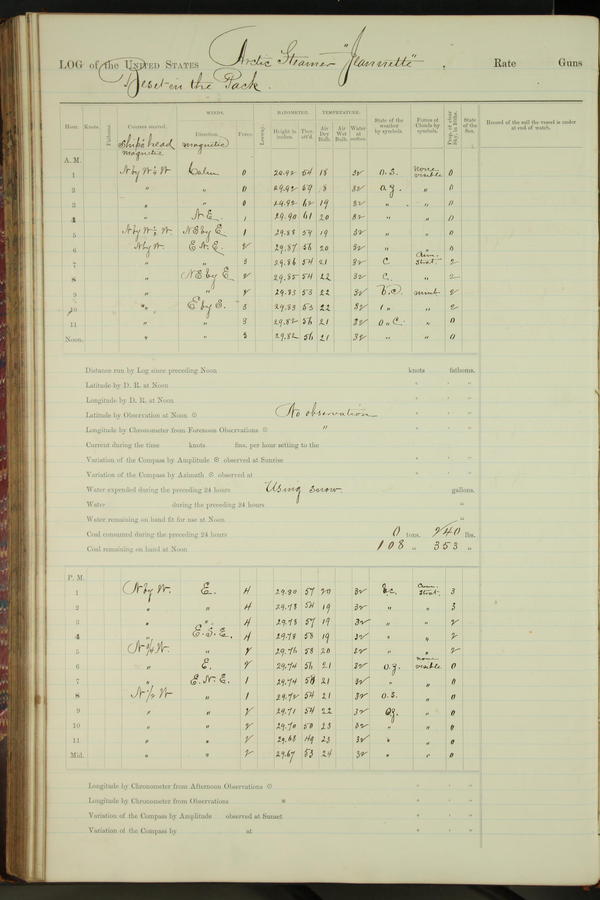 LOG of the UNITED STATES Arctic Steamer "Jeannette". Rate Guns
Beset in the Pack.
WINDS. BAROMETER. TEMPERATURE.
Hour. Knots. Fathoms. Courses steered. Direction. Force. Leeway. Height in inches. Ther. att'd. Air Dry Bulb. Air Wet Bulb. Water at surface. State of the weather by symbols. Forms of Clouds by symbols. Prop. of clear Sky, in tenths. State of the Sea. Record of the sail the vessel is under at end of watch.
ship's head magnetic magnetic
A. M.
1 N by W ½ W Calm 0 29.92 54 18 32 O.S. none visible 0
2 " " 0 29.92 59 18 32 O.g. " 0
3 " " 0 29.92 62 19 32 " " 0
4 " N.E. 1 29.90 61 20 32 " " 0
5 N by W ½ W. N.E by E. 1 29.88 59 19 32 " " 0
6 N by W. E.N.E. 2 29.87 56 20 32 " " 0
7 " " 3 29.86 54 21 32 C Cum. Strat. 2
8 " N.E by E. 2 29.85 54 22 32 C. " 2
9 " " 2 29.83 53 22 32 b.c. " 2
10 " E by S. 3 29.83 53 22 32 " " 2
11 " " 3 29.82 56 21 32 O.C. " 0
Noon. " " 3 29.82 56 21 32 " " 0
Distance run by Log since preceding Noon knots fathoms.
Latitude by D. R. at Noon
Longitude by D. R. at Noon
Latitude by Observation at Noon ☉ No observation
Longitude by Chronometer from Forenoon Observations ☉ "
Current during the time knots fms. per hour setting to the
Variation of the Compass by Amplitude ☉ observed at Sunrise
Variation of the Compass by Azimuth ☉ observed at
Water expended during the preceding 24 hours Using snow. gallons.
Water during the preceding 24 hours "
Water remaining on hand fit for use at Noon "
Coal consumed during the preceding 24 hours 0 tons. 240 lbs.
Coal remaining on hand at Noon 108 " 353 "
P. M.
1 N by W. E. 4 29.80 57 20 32 b.c. Cum. Strat. 3
2 " " 4 29.78 54 19 32 " " 3
3 " " 4 29.78 57 19 32 " " 2
4 " E.S.E. 4 29.78 58 19 32 " " 2
5 N ¾ W. " 2 29.76 58 20 32 " " 2
6 " E. 2 29.74 56 21 32 O.g. none visible 0
7 " E.N.E. 1 29.74 58 21 32 " " 0
8 N ½ W " 1 29.72 54 21 32 O.S. " 0
9 " " 2 29.71 54 22 32 Og. " 0
10 " " 2 29.70 50 23 32 " " 0
11 " " 2 29.68 49 23 32 " " 0
Mid. " " 2 29.67 53 24 32 " " 0
Longitude by Chronometer from Afternoon Observations ☉
Longitude by Chronometer from Observations *
Variation of the Compass by Amplitude observed at Sunset
Variation of the Compass by at